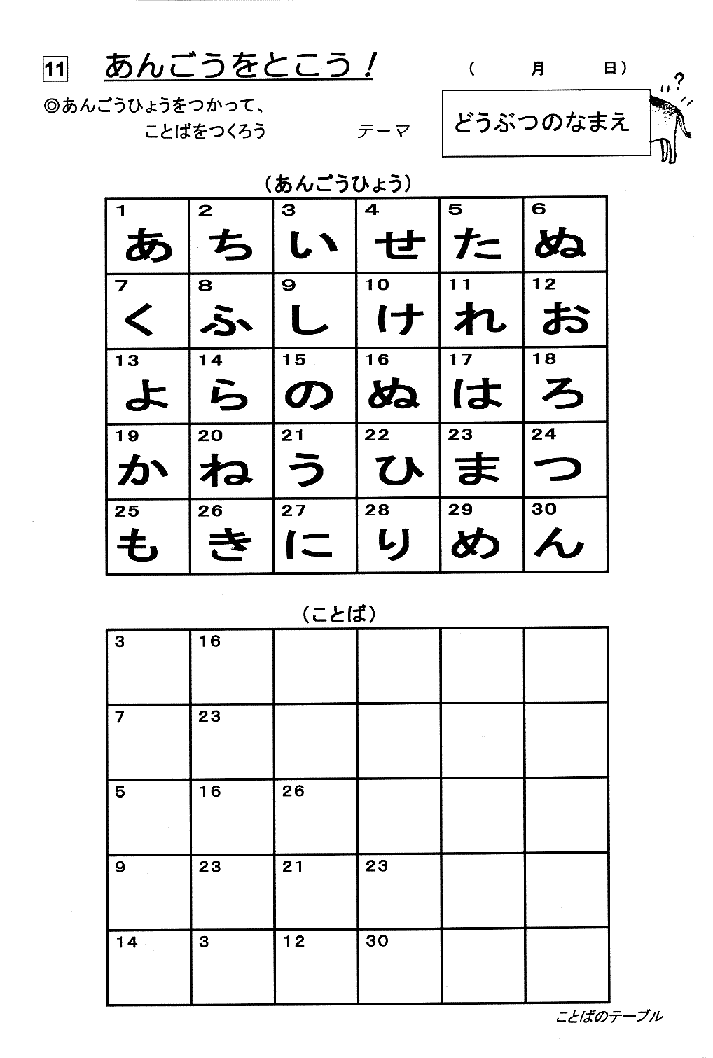 11 あんごうをとこう！ （　　月　　日）
◎あんごうひょうをつかって、
ことばをつくろう　　テーマ　どうぶつのなまえ
?
（あんごうひょう）
1 2 3 4 5 6
あ ち い せ た ぬ
7 8 9 10 11 12
く ふ し け れ お
13 14 15 16 17 18
よ ら の ぬ は ろ
19 20 21 22 23 24
か ね う ひ ま つ
25 26 27 28 29 30
も き に り め ん
（ことば）
3 16
7 23
5 16 26
9 23 21 23
14 3 12 30
ことばのテーブル